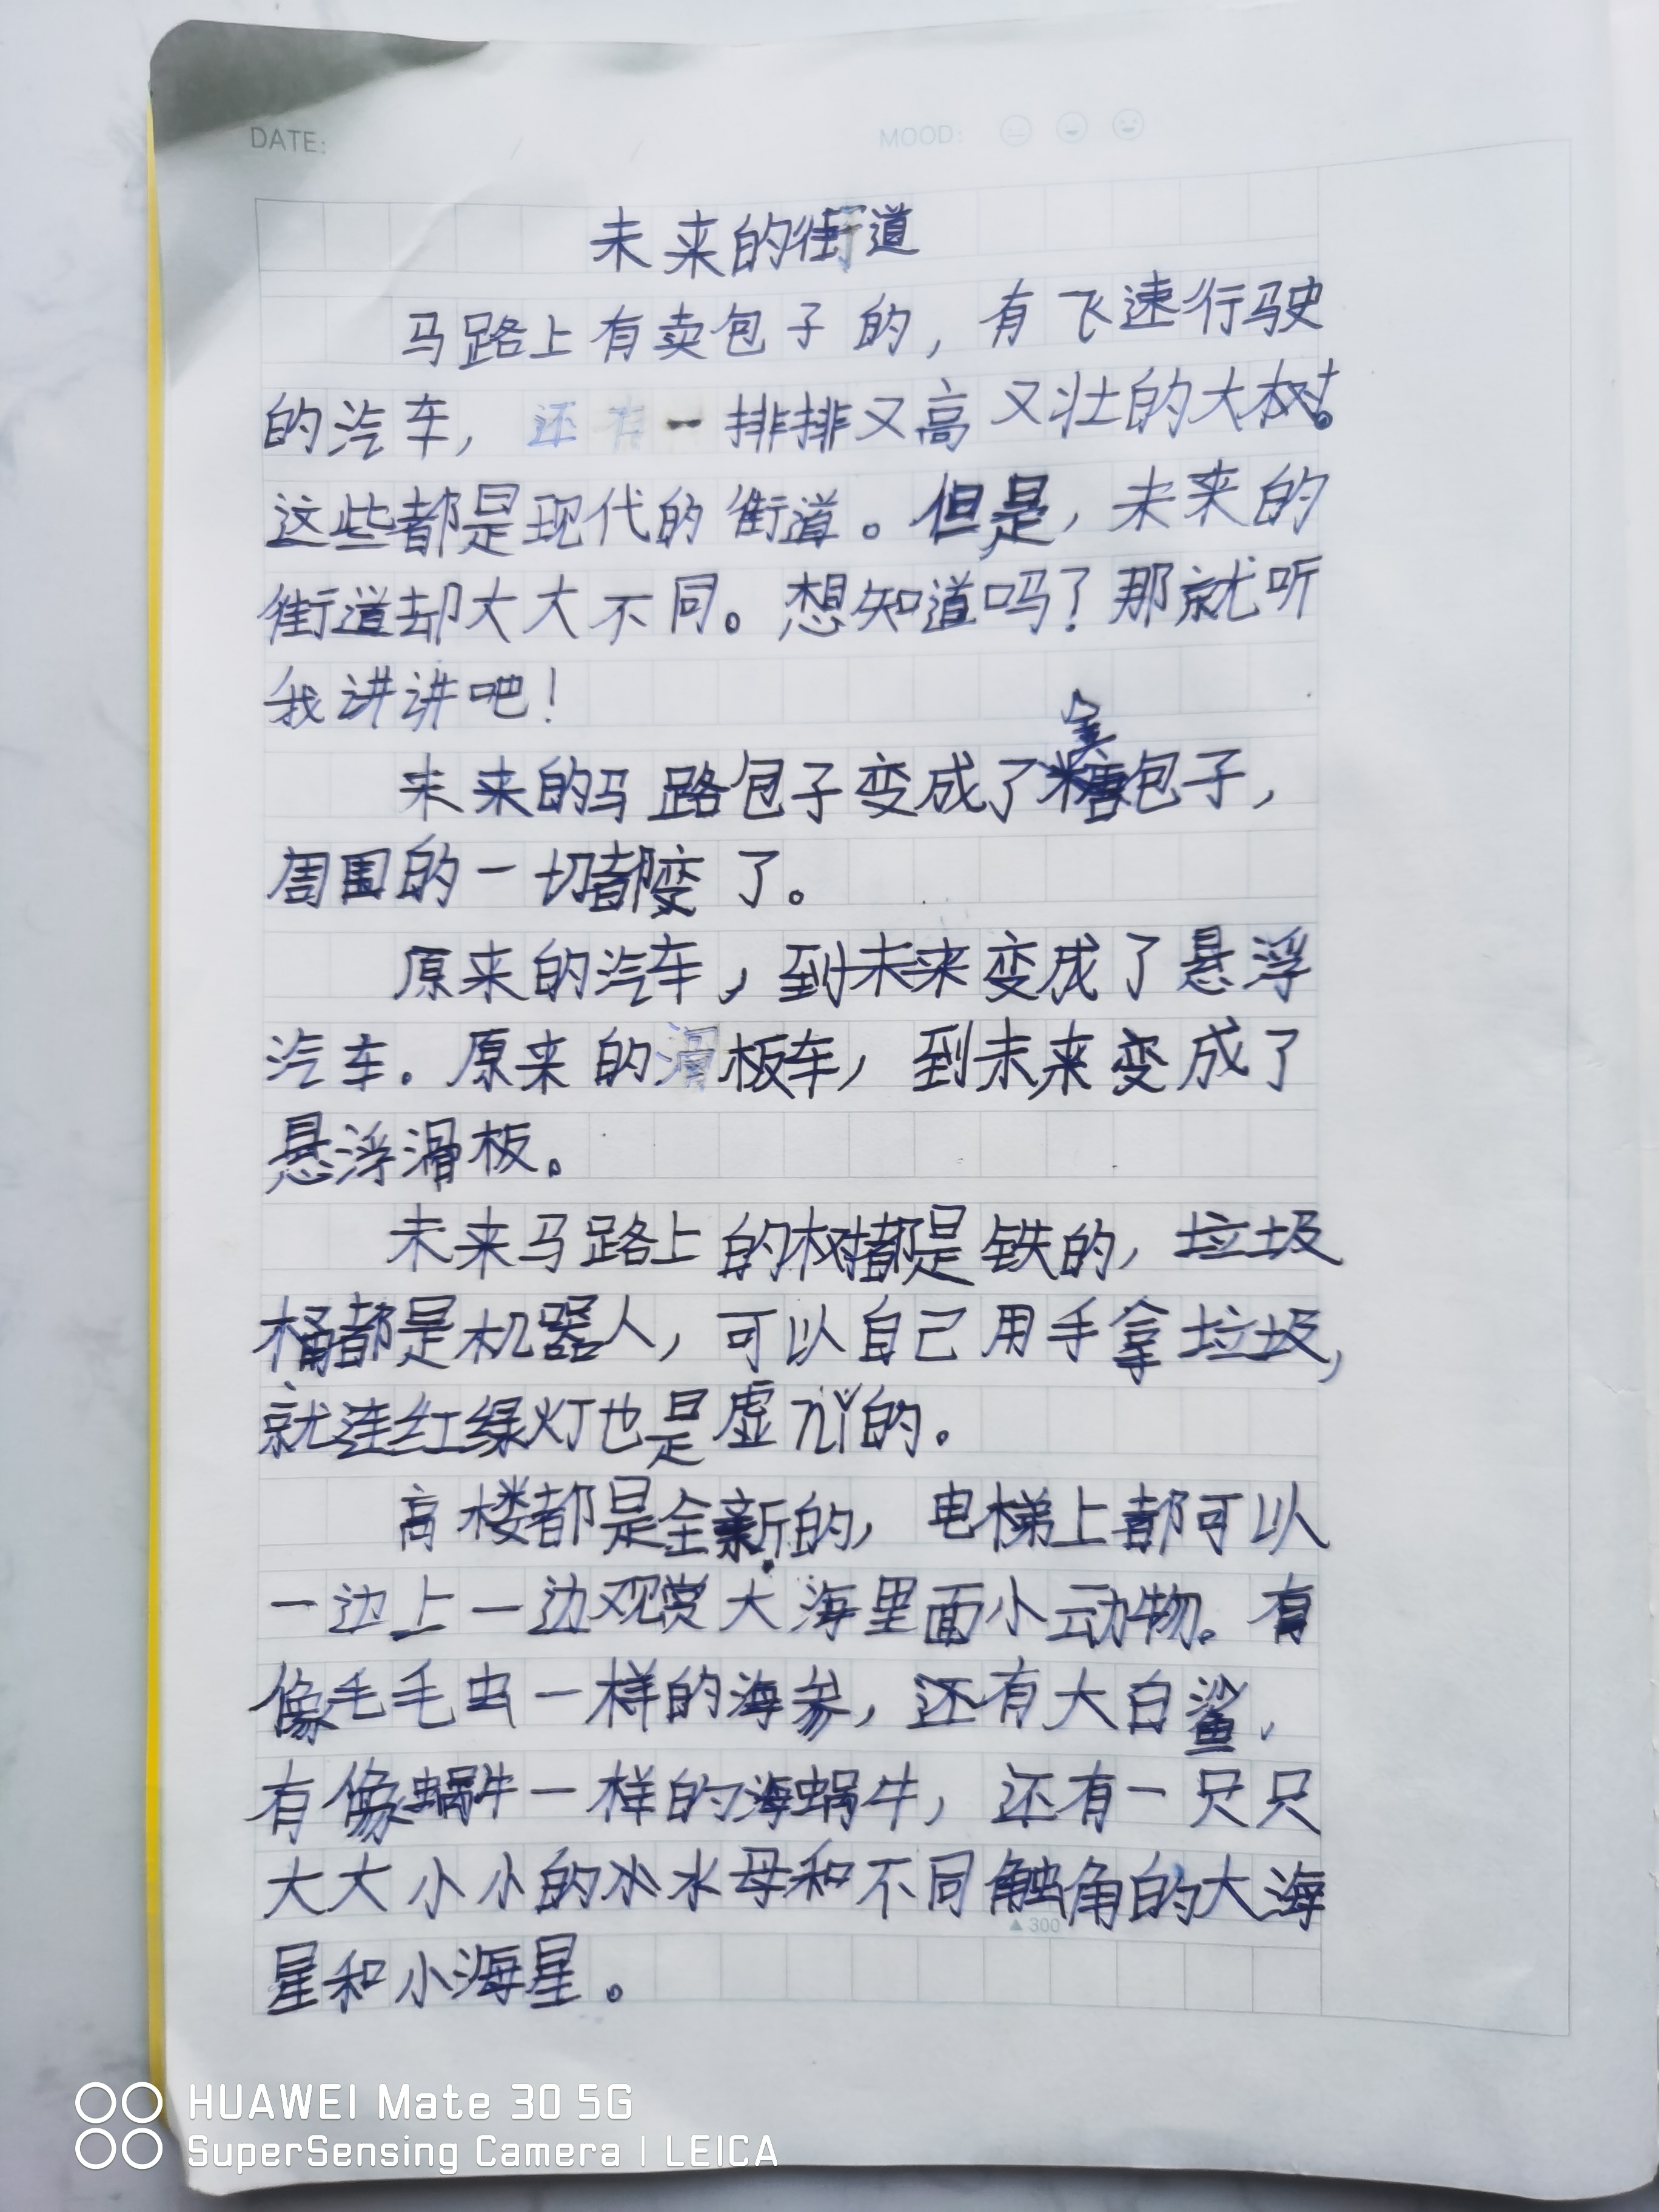 DATE:
MOOD:
未来的街道
马路上有卖包子的，有飞速行驶
的汽车，还有一排排又高又壮的大树。
这些都是现代的街道。但是，未来的
街道却大大不同。想知道吗？那就听
我讲讲吧！
未来的马路包子变成了糖包子，
周围的一切都变了。
原来的汽车，到未来变成了悬浮
汽车.原来的滑板车，到未来变成了
悬浮滑板。
未来马路上的树都是铁的，垃圾
桶都是机器人，可以自己用手拿垃圾，
就连红绿灯也是虚的。
高楼都是全新的，电梯上都可以
一边上一边观赏大海里面小动物。有
像毛毛虫一样的海参，还有大白鲨，
有像蜗牛一样的海蜗牛，还有一只只
大大小小的水水母和不同触角的大海
▲300
星和小海星。
HUAWEI Mate 30 5G
SuperSensing Camera | LEICA